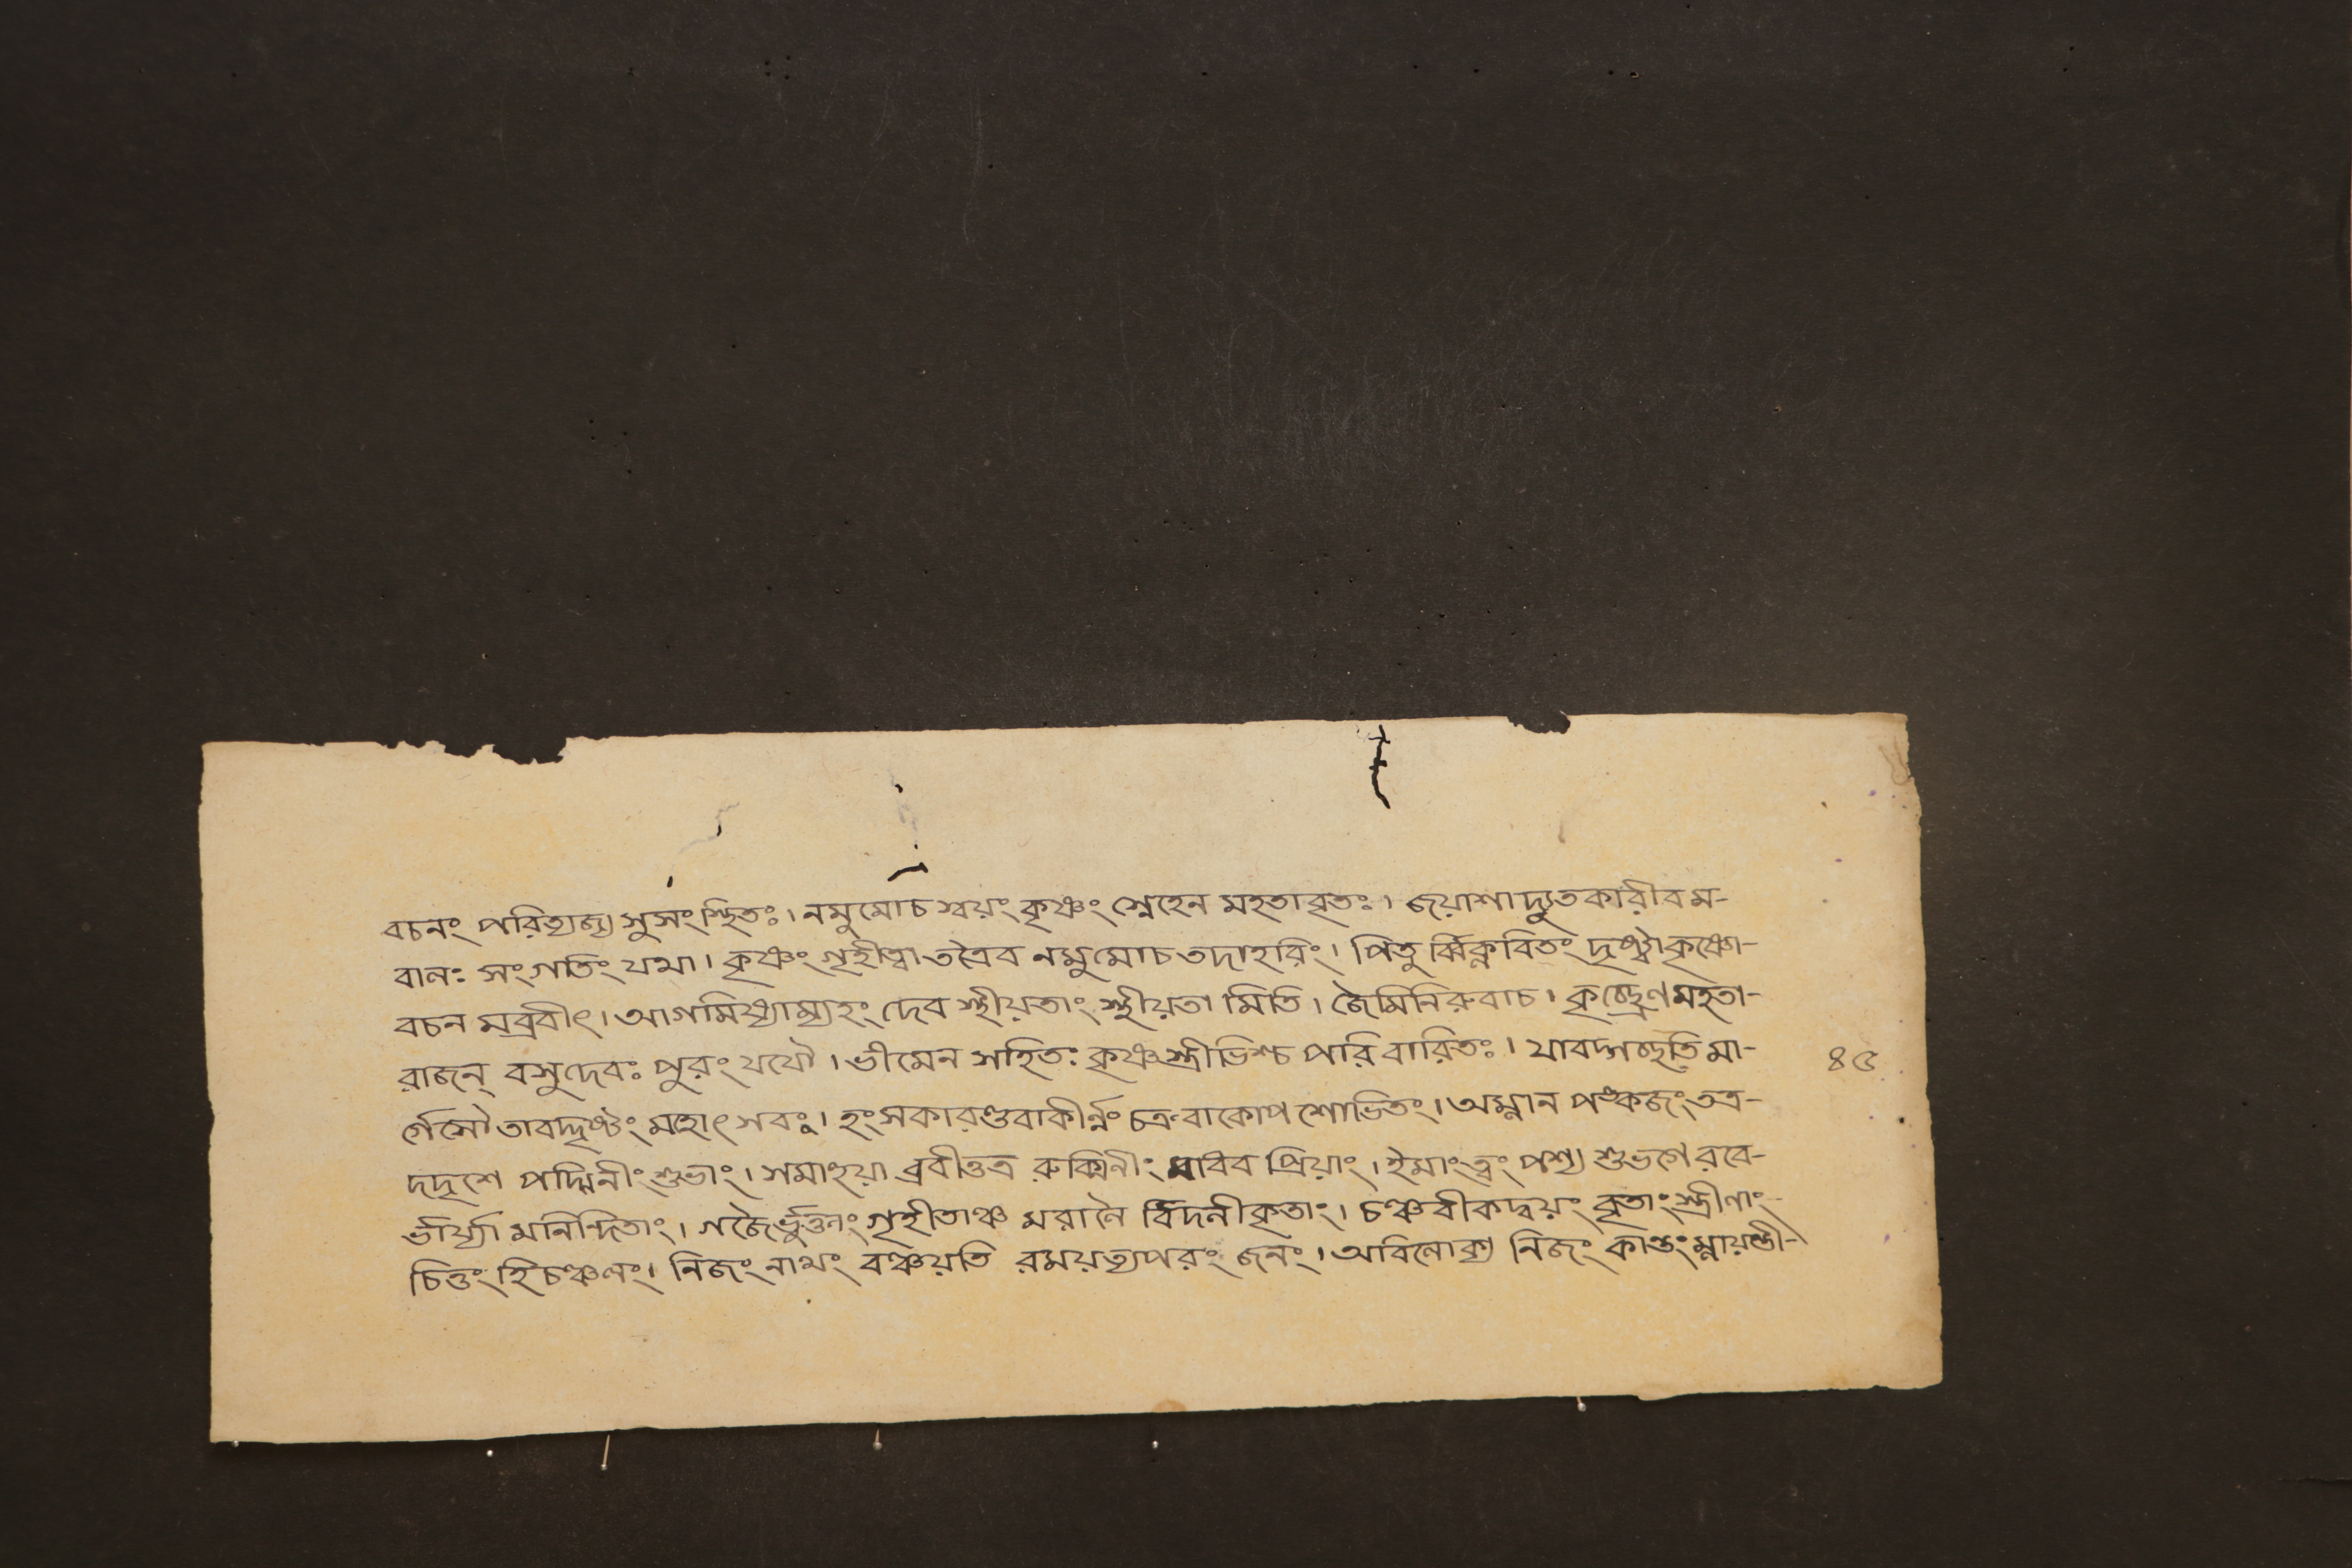 বচনং পরিত্যজ্য সুসংস্থিতঃ। নমুমোচ স্বয়ং কৃষ্ণং স্নেহেন মহতাবৃতঃ। জয়াশা দ্যুতকারীব ম-
বানঃ সংগতিং যথা। কৃষ্ণং গৃহীত্বা তত্রৈব নমুমোচ তদাহরিং। পিতু র্ব্বিক্লবিতং দৃষ্ট্বা কৃষ্ণো-
বচন মব্রবীৎ। আগমিষ্যাম্যহং দেব স্থীয়তাং স্থীয়তা মিতি। জৈমিনিরুবাচ। কৃচ্ছ্রেণ মহতা-
রাজন্ বসুদেবঃ পুরং যযৌ। ভীমেন সহিতঃ কৃষ্ণ স্ত্রীভিশ্চ পরি বারিতঃ। যাবদ্গচ্ছতি মা-
৪৫
র্গেসৌ তাবদ্দৃষ্টং মহোৎ সবং। হংসকারণ্ডবাকীর্ন্নং চক্রবাকোপ শোভিতং। অম্লান পঙ্কজং তত্র-
দদৃশে পদ্মিনীং শুভাং। সমাহূয়া ব্রবীত্তত্র রুক্মিনীং প্রিয়াং। ইমাং ত্বং পশ্য শুভগে রবে-
র্ভার্য্যা মনিন্দিতাং। গজৈর্ভুক্তাং গৃহীতাঞ্চ মরালৈ র্বিদলীকৃতাং। চঞ্চরীকদ্বয়ং বৃতাং স্ত্রীণাং-
চিত্তং হি চঞ্চলং। নিজং নাথং বঞ্চয়তি রময়ত্যপরং জনং। অবিলোক্য নিজং কান্তং ম্লায়ন্তী-